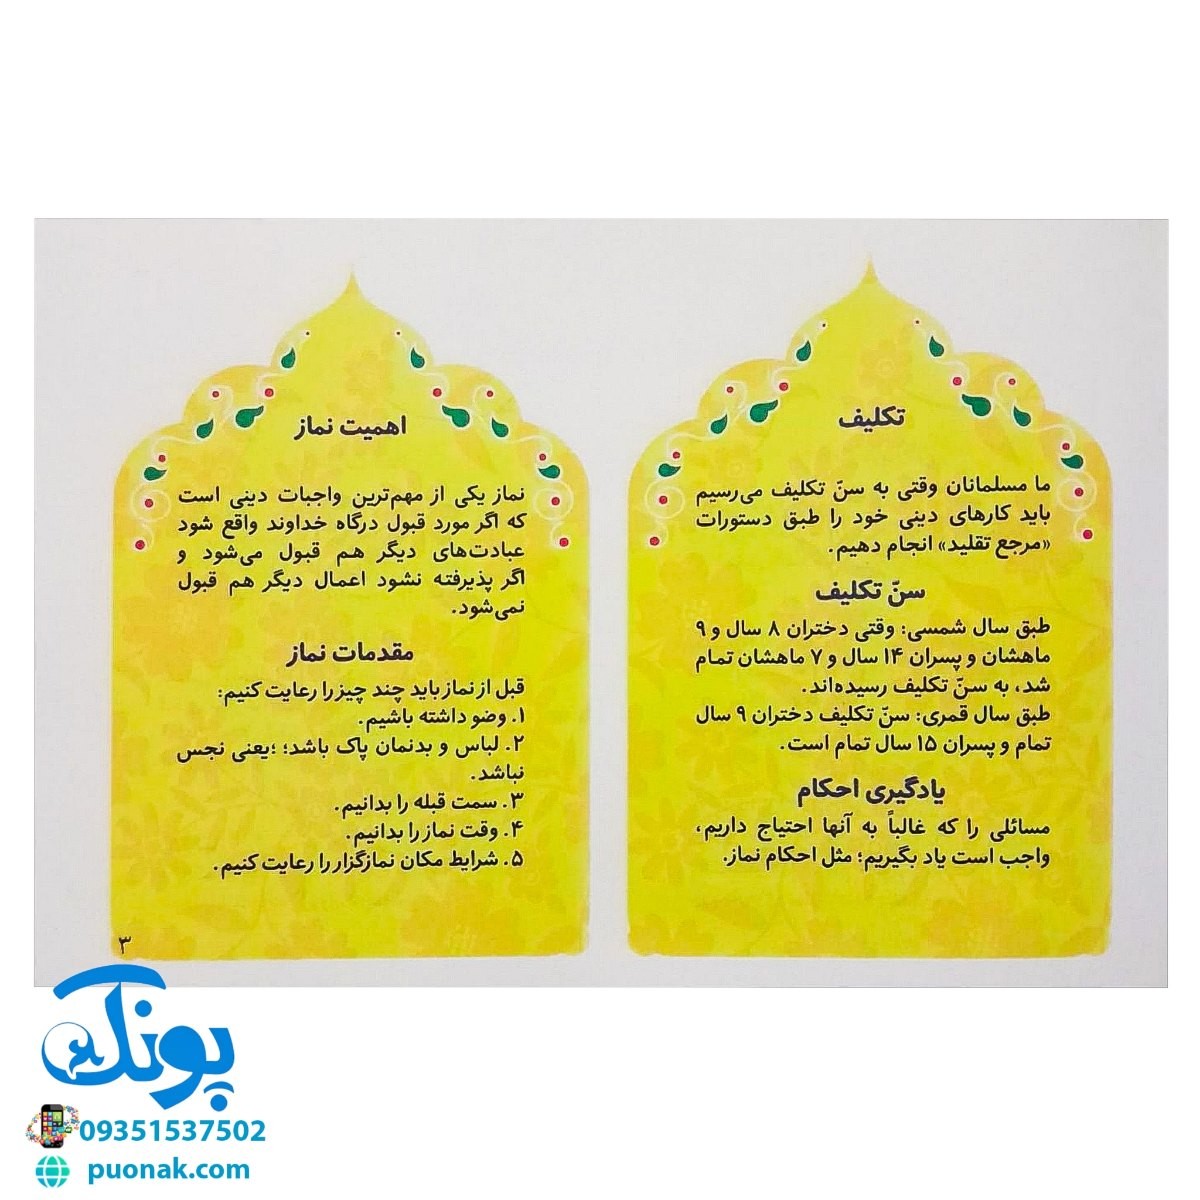 تکلیف
ما مسلمانان وقتی به سنّ تکلیف می‌رسیم
باید کارهای دینی خود را طبق دستورات
«مرجع تقلید» انجام دهیم.
سنّ تکلیف
طبق سال شمسی: وقتی دختران ۸ سال و ۹
ماهشان و پسران ۱۴ سال و ۷ ماهشان تمام
شد، به سنّ تکلیف رسیده‌اند.
طبق سال قمری: سنّ تکلیف دختران ۹ سال
تمام و پسران ۱۵ سال تمام است.
یادگیری احکام
مسائلی را که غالباً به آنها احتیاج داریم،
واجب است یاد بگیریم؛ مثل احکام نماز.
اهمیت نماز
نماز یکی از مهم‌ترین واجبات دینی است
که اگر مورد قبول درگاه خداوند واقع شود
عبادت‌های دیگر هم قبول می‌شود و
اگر پذیرفته نشود اعمال دیگر هم قبول
نمی‌شود.
مقدمات نماز
قبل از نماز باید چند چیز را رعایت کنیم:
۱. وضو داشته باشیم.
۲. لباس و بدنمان پاک باشد؛ ؛یعنی نجس
نباشد.
۳. سمت قبله را بدانیم.
۴. وقت نماز را بدانیم.
۵. شرایط مکان نمازگزار را رعایت کنیم.
۳
پونک
09351537502
puonak.com